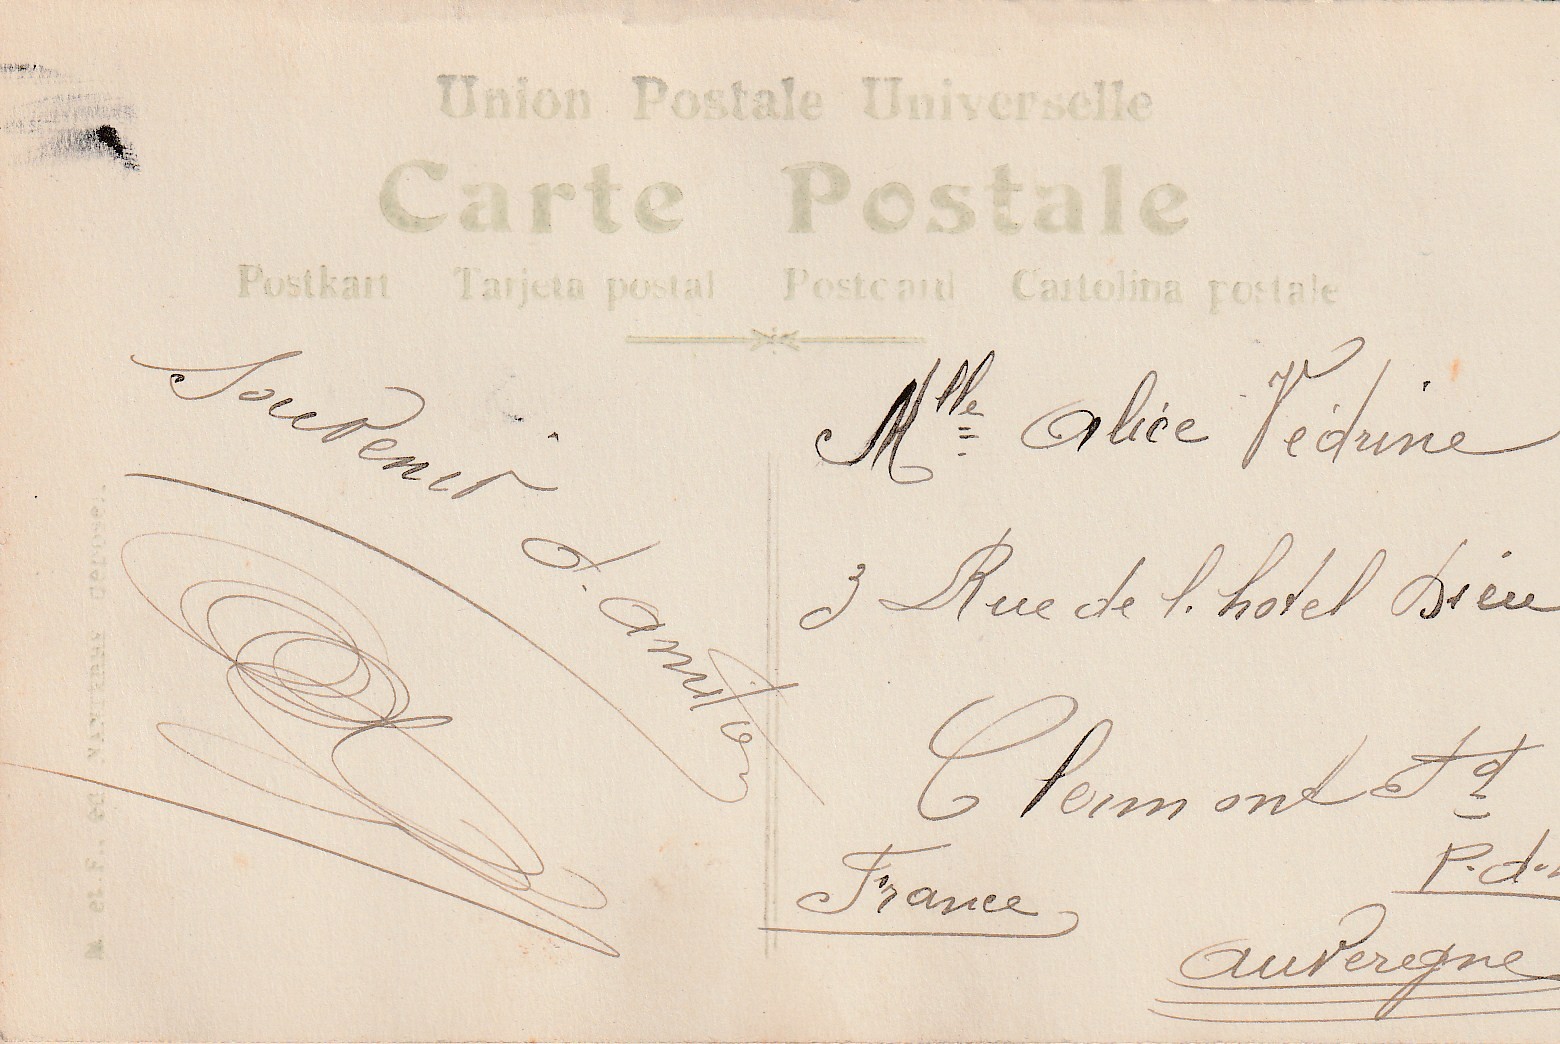 Union Postale Universelle
Carte Postale
Postkart Tarjeta postal Postcard Cartolina postale
Souvenir
d'amitié
Mlle Alice Védrine
3 Rue de l'hotel Dieu
Clermont Fd
P.d.
France
Auveregne